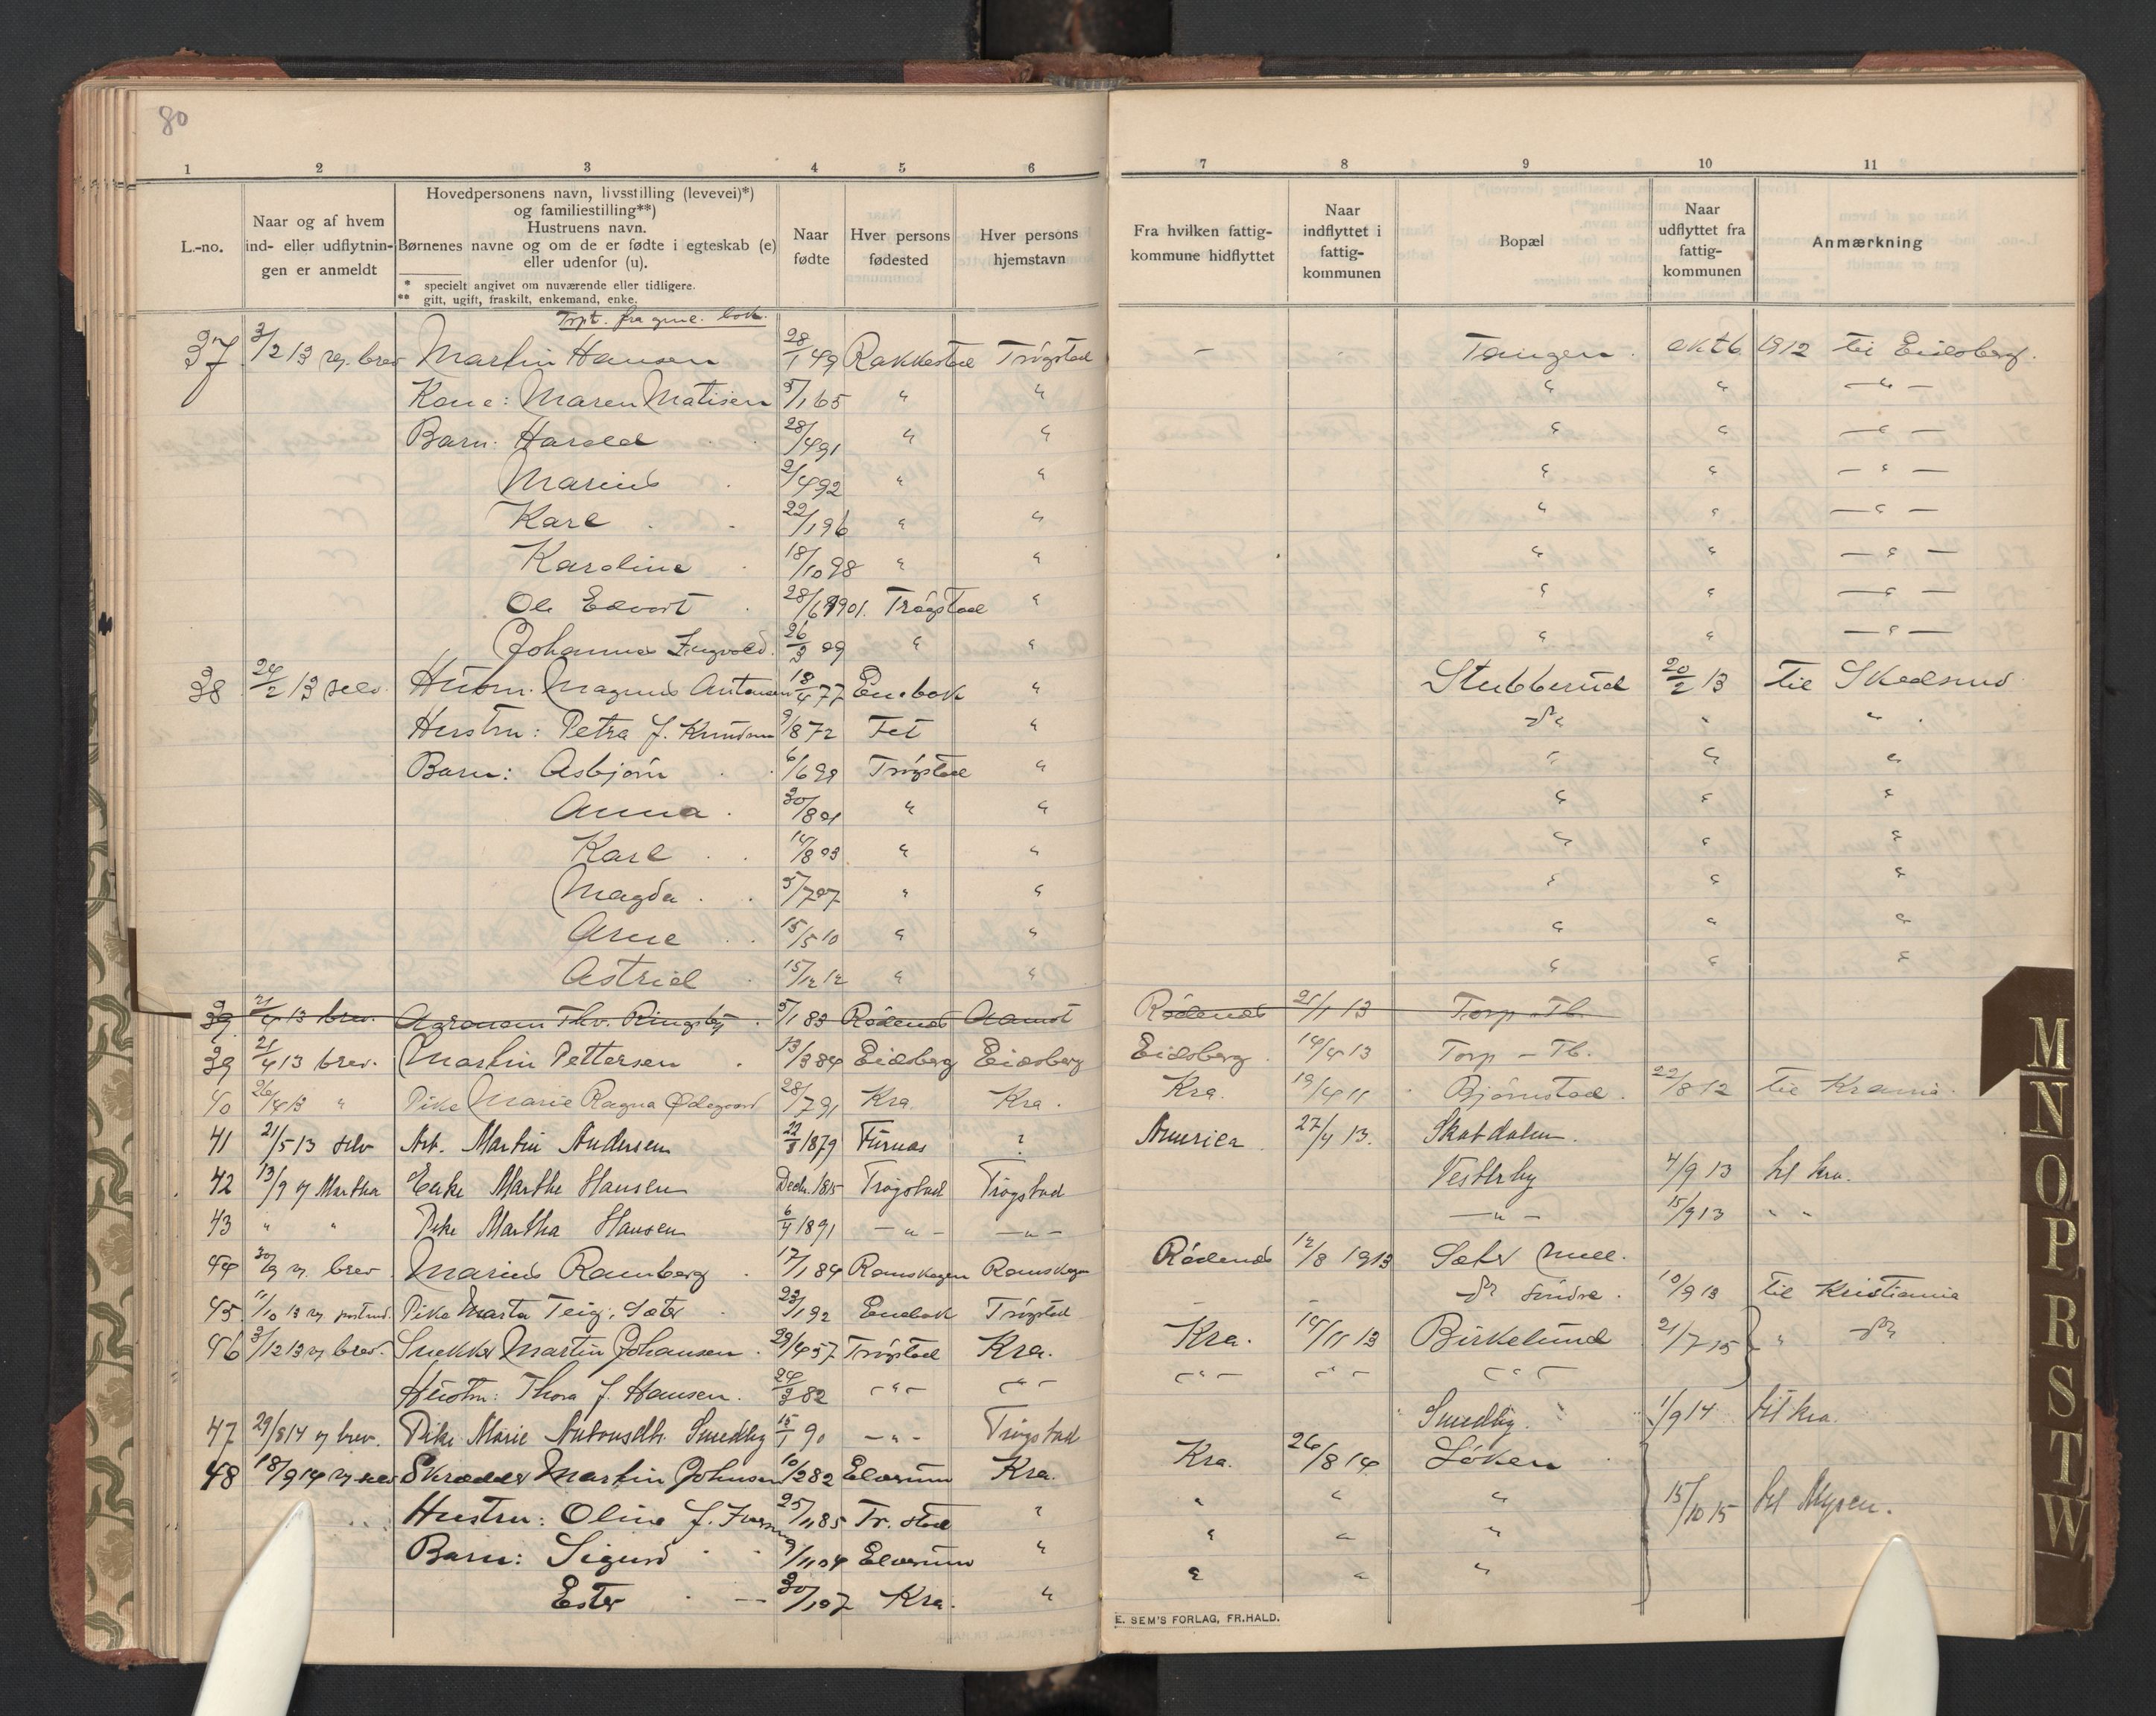 80
1 2 3 4 5 6 7 8 9 10 11
L.-no.
Naar og af hvem ind- eller udflytnin-gen er anmeldt
Hovedpersonens navn, livsstilling (levevei)*) og familiestilling**) Hustruens navn. Børnenes navne og om de er fødte i egteskab (e) eller udenfor (u).
* specielt angivet om nuværende eller tidligere.
** gift, ugift, fraskilt, enkemand, enke.
Naar fødte
Hver persons fødested
Hver persons hjemstavn
Fra hvilken fattig-kommune hidflyttet
Naar indflyttet i fattig-kommunen
Bopæl
Naar udflyttet fra fattig-kommunen
Anmærkning
Trpt. fra gml. bok.
37 3/2 13 v. brev Martin Hansen 28/1 49 Rakkestad Trøgstad - - Tangen. oktb. 1912 til Eidsberg.
Kone: Maren Matisen 5/1 65 " " " " -"-
Barn: Harald 28/4 91 " " " " -"-
Marius 2/4 92 " " " " -"-
Karl 22/1 96 " " " " -"-
Karoline 18/10 98 " " " " -"-
Ole Edvart 28/6 1901. Trøgstad " " " -"-
Johannes Ingvald. 26/3 09 " " " " -"-
38 24/2 13 selv. Husm. Magnus Antonsen 18/4 77 Enebak " Stubberud 20/2 13 til Skedsmo
Hustru: Petra f. Knudsen 9/8 72 Fet " do " "
Barn: Asbjørn 6/6 99 Trøgstad " " " "
Anna 30/8 01 " " " " "
Karl 14/8 03 " " " " "
Magda 5/7 07 " " " " "
Arne 15/5 10 " " " " "
Astrid 15/12 12 " " " " "
39 21/4 13 brev. Agronom Thv. Ringsby 5/1 83 Rødenes Aamot Rødenes 25/1 13 Torp Tb.
39 21/4 13 brev. Martin Pettersen 13/3 84 Eidsberg Eidsberg Eidsberg 14/4 13 Torp - Tb.
40 26/4 13 " Pike Marie Ragna Ødegaard 28/7 91 Kra. Kra. Kra. 19/4 11 Bjørnstad 22/8 12 til Krania.
41 21/5 13 selv Arb. Martin Andersen 22/8 1879 Furnes ? America 27/4 13. Skatdalen.
42 13/9 v Martha Enke Marthe Hansen Decbr. 1815 Trøgstad Trøgstad Vesterby 4/9 13 til Kra.
43 " " Pike Martha Hansen 6/4 1891 -"- -"- -"- 15/9 13 " "
44 30/9 v. brev Marius Ramberg 17/1 84 Rømskogen Rømskogen Rødenes 12/8 1913 Sæter Mell.
45 11/10 13 v. postanv. Pike Marta Teig, Sæter 23/1 92 Enebak Trøgstad - - do søndre. 10/9 13 til Kristiania
46 3/12 13 v. brev. Snekker Martin Johansen 29/4 57 Trøgstad Kra. Kra. 14/11 13 Birkelund 21/7 15 " do
Hustru: Thora f. Hansen. 24/3 82 -"- -"- -"- -"- -"-
47 29/8 14 v brev. Pike Marie Antonsdtr. Smedby 15/1 90 -"- Trøgstad Smedby. 1/9 14 til Kra.
48 18/9 14 v. selv Skrædder Martin Johnsen 10/2 82 Elverum Kra. Kra. 26/8 14 Løken
Hustru: Oline f. 25/11 85 Tr.stad " " " " 15/10 15 til Mysen.
Barn: Sigurd 9/11 04 Elverum " " " "
Ester 30/1 07 Kra. " " " "
E. SEM'S FORLAG, FR.HALD.
M
N
O
P
R
S
T
W